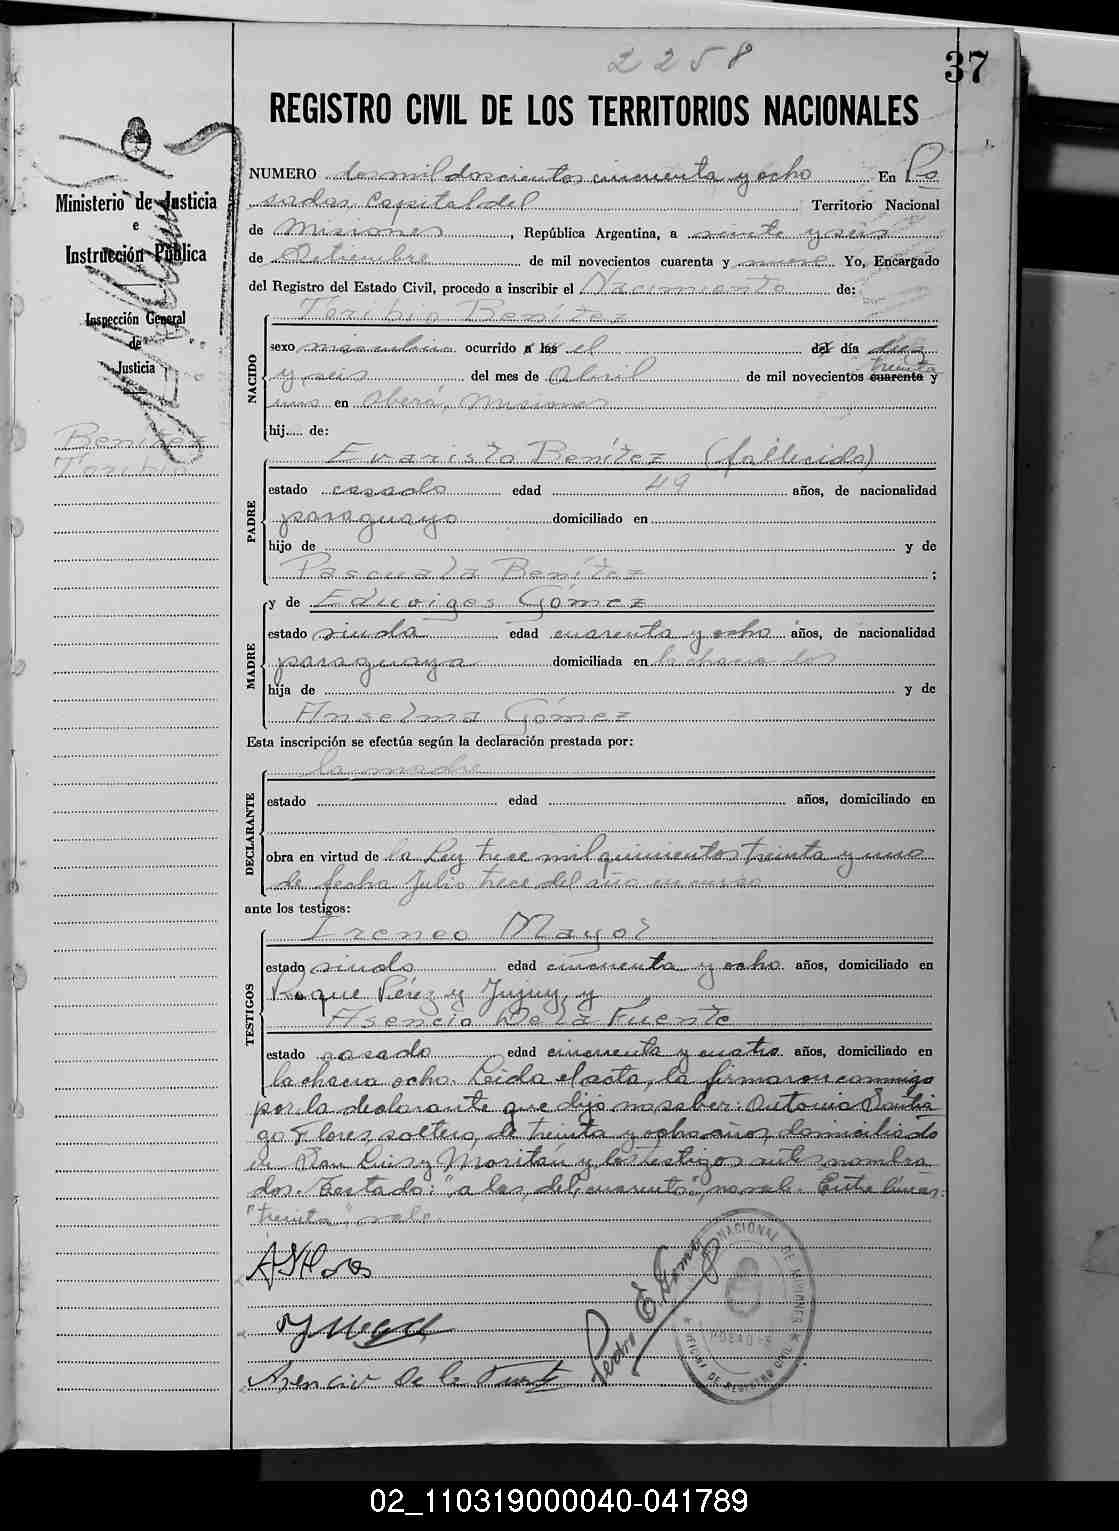 2258
37
REGISTRO CIVIL DE LOS TERRITORIOS NACIONALES
NUMERO dos mil doscientos cincuenta y ocho En Po
sadas Capital del Territorio Nacional
de Misiones, República Argentina, a veinte y seis
de Setiembre de mil novecientos cuarenta y nueve Yo, Encargado
del Registro del Estado Civil, procedo a inscribir el Nacimiento de:
Ministerio de Justicia
e
Instrucción Pública
Inspección General
de
Justicia
Benítez
Toribio
NACIDO
Toribio Benítez
sexo masculino ocurrido a las el del día diez
y seis del mes de Abril de mil novecientos cuarenta treinta y
uno en Oberá, Misiones
hij..... de:
PADRE
Evaristo Benítez (fallecido)
estado casado edad 49 años, de nacionalidad
paraguayo domiciliado en
hijo de y de
Pascuala Benítez ;
MADRE
y de Eduviges Gómez
estado viuda edad cuarenta y ocho años, de nacionalidad
paraguaya domiciliada en la chacra dos
hija de y de
Anselma Gómez
Esta inscripción se efectúa según la declaración prestada por:
DECLARANTE
la madre
estado edad años, domiciliado en
obra en virtud de la Ley trece mil quinientos treinta y uno
de fecha Julio trece del año en curso
ante los testigos:
TESTIGOS
Ireneo Mayol
estado viudo edad cincuenta y ocho años, domiciliado en
Roque Pérez y Jujuy, y
Asencio De la Fuente
estado casado edad cincuenta y cuatro años, domiciliado en
la chacra ocho. Leida el acta, la firmaron conmigo
por la declarante que dijo no saber: Antonio Santia
go Flores, soltero, de treinta y ocho años, domiciliado
en San Luis y Moritán y los testigos antes nombra
dos. Testado: "a las, del, cuarenta", no vale. Entre líneas:
"treinta", vale.
A S Flores
Asencio De la Fuente
Pedro E.
NACIONAL DE MISIONES
POSADAS
OFICINA DE REGISTRO CIVIL
02_110319000040-041789